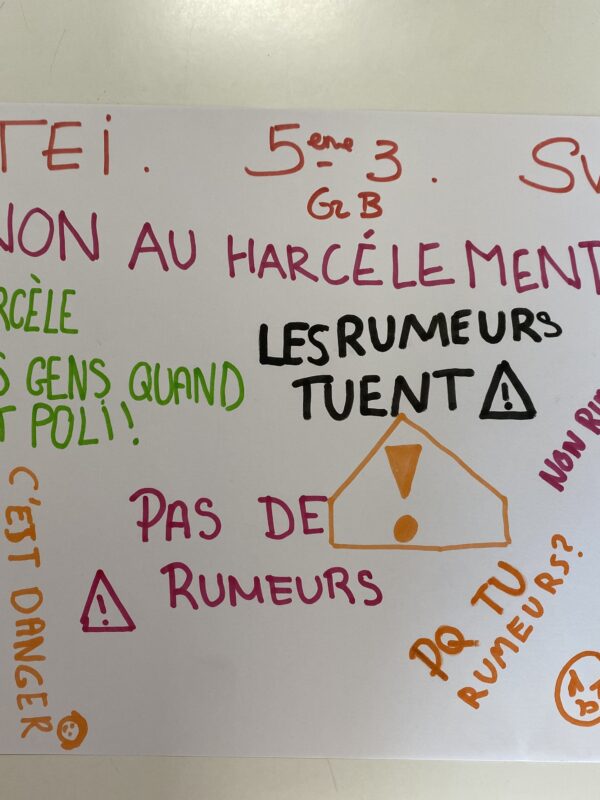 TEi. 5eme 3. SV
Gr B
NON AU HARCÉLEMENT
RCÈLE
S GENS QUAND
T POLI!
LES RUMEURS
TUENT
NON RU
C'EST DANGER
PAS DE
RUMEURS
PQ TU
RUMEURS?